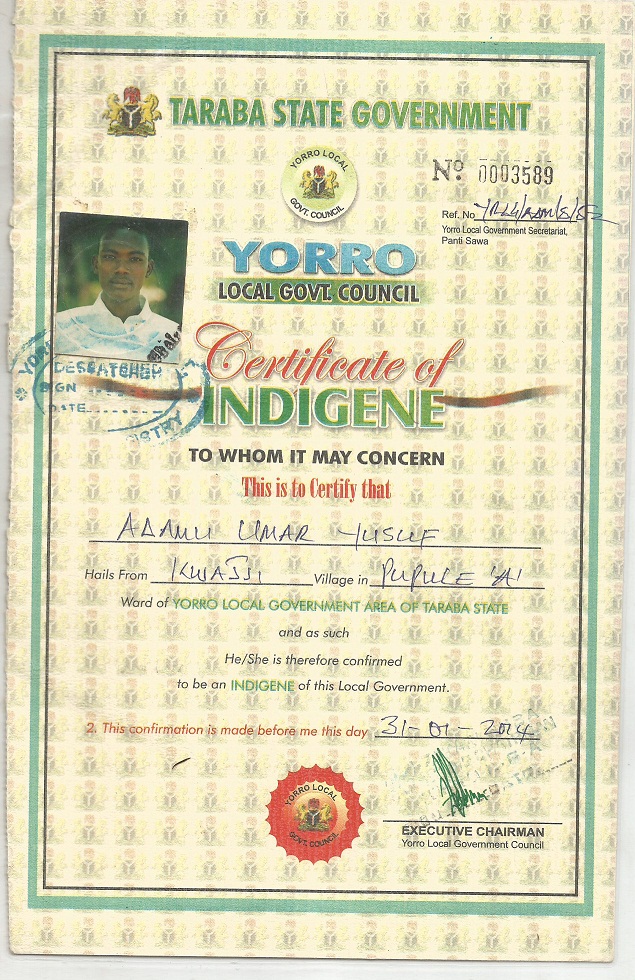 TARABA STATE GOVERNMENT
YORRO LOCAL
GOVT. COUNCIL
No. 0003589
Ref. No
Yorro Local Government Secretariat,
Panti Sawa
YORRO
LOCAL GOVT. COUNCIL
DESPATCHED
SIGN
DATE
Certificate of
INDIGENE
TO WHOM IT MAY CONCERN
This is to Certify that
ADAMU UMAR YUSUF
Hails From KWAJJI Village in PUPULE 'A'
Ward of YORRO LOCAL GOVERNMENT AREA OF TARABA STATE
and as such
He/She is therefore confirmed
to be an INDIGENE of this Local Government.
2. This confirmation is made before me this day 31-01-2014
YORRO LOCAL
GOVT. COUNCIL
EXECUTIVE CHAIRMAN
Yorro Local Government Council